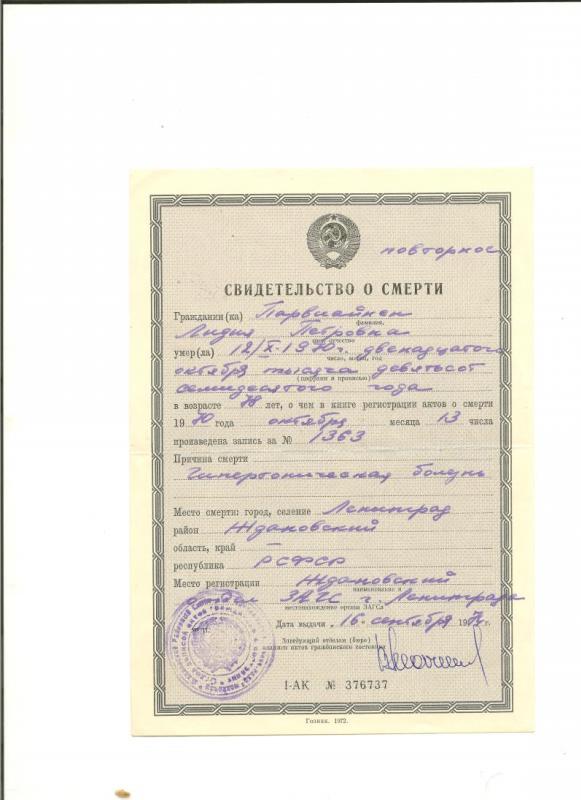 повторное
СВИДЕТЕЛЬСТВО О СМЕРТИ
Гражданин(ка) Парвиайнен
фамилия,
Лидия Петровна
имя, отчество
умер(ла) 12/X-1970г. двенадцатого
число, месяц, год
октября тысяча девятьсот
(цифрами и прописью)
семидесятого года
в возрасте 78 лет, о чем в книге регистрации актов о смерти
1970 года октября месяца 13 числа
произведена запись за № 1363
Причина смерти
Гипертоническая болезнь
Место смерти: город, селение Ленинград
район Ждановский
область, край
республика РСФСР
Место регистрации Ждановский
наименование и
отдел ЗАГС г. Ленинграда
местонахождение органа ЗАГСа
Дата выдачи 16 сентября 197 г.
Заведующий отделом (бюро)
записи актов гражданского состояния
I-АК № 376737
Гознак. 1972.